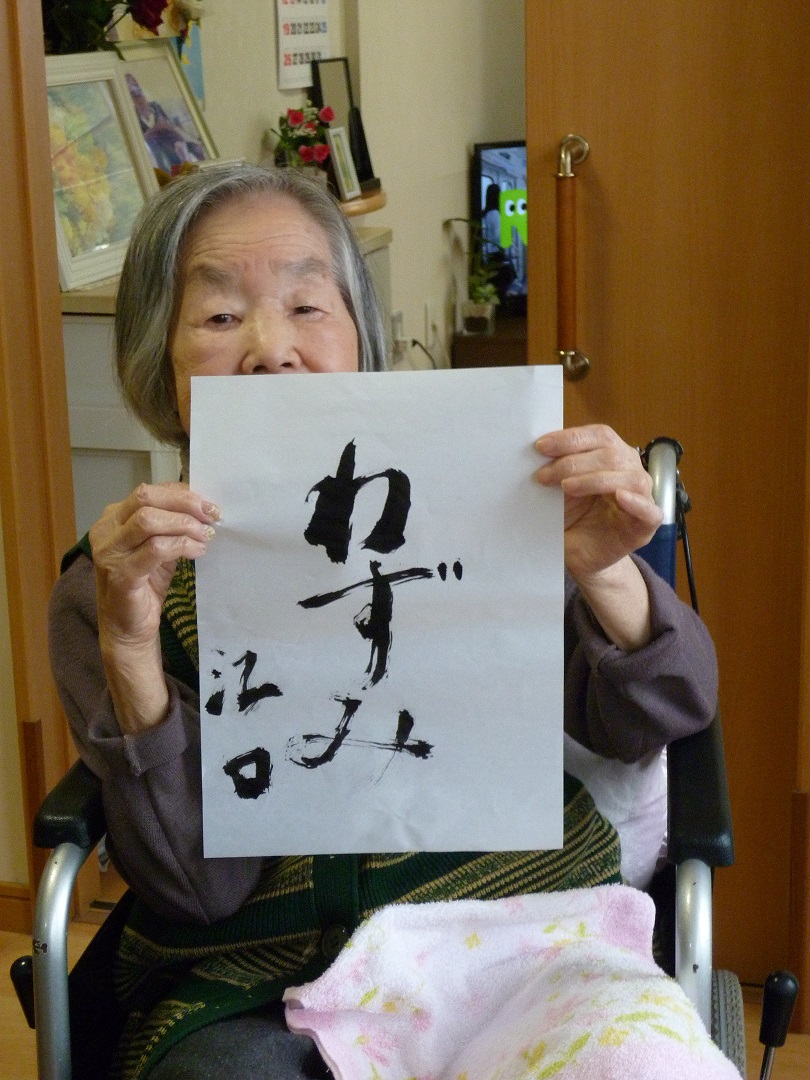 わずみ
江口